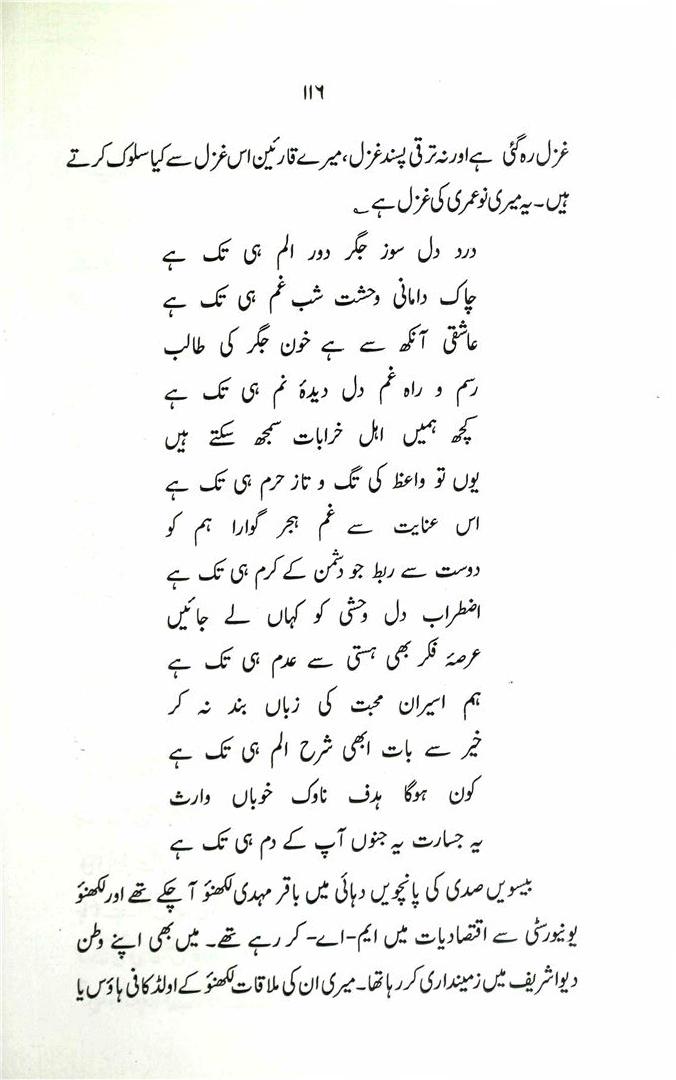 ۱۱۶
غزل رہ گئی ہے اور نہ ترقی پسند غزل، میرے قارئین اس غزل سے کیا سلوک کرتے
ہیں۔ یہ میری نو عمری کی غزل ہے؎
درد دل سوز جگر دور الم ہی تک ہے
چاک دامانی وحشت شب غم ہی تک ہے
عاشقی آنکھ سے ہے خون جگر کی طالب
رسم و راہ غم دل دیدۂ نم ہی تک ہے
کچھ ہمیں اہل خرابات سمجھ سکتے ہیں
یوں تو واعظ کی تگ و تاز حرم ہی تک ہے
اس عنایت سے غم ہجر گوارا ہم کو
دوست سے ربط جو دشمن کے کرم ہی تک ہے
اضطراب دل وحشی کو کہاں لے جائیں
عرصۂ فکر بھی ہستی سے عدم ہی تک ہے
ہم اسیران محبت کی زباں بند نہ کر
خیر سے بات ابھی شرح الم ہی تک ہے
کون ہوگا ہدف ناوک خوباں وارث
یہ جسارت یہ جنوں آپ کے دم ہی تک ہے
بیسویں صدی کی پانچویں دہائی میں باقر مہدی لکھنؤ آ چکے تھے اور لکھنؤ
یونیورسٹی سے اقتصادیات میں ایم-اے- کر رہے تھے۔ میں بھی اپنے وطن
دیوا شریف میں زمینداری کر رہا تھا۔ میری ان کی ملاقات لکھنؤ کے اولڈ کافی ہاؤس یا